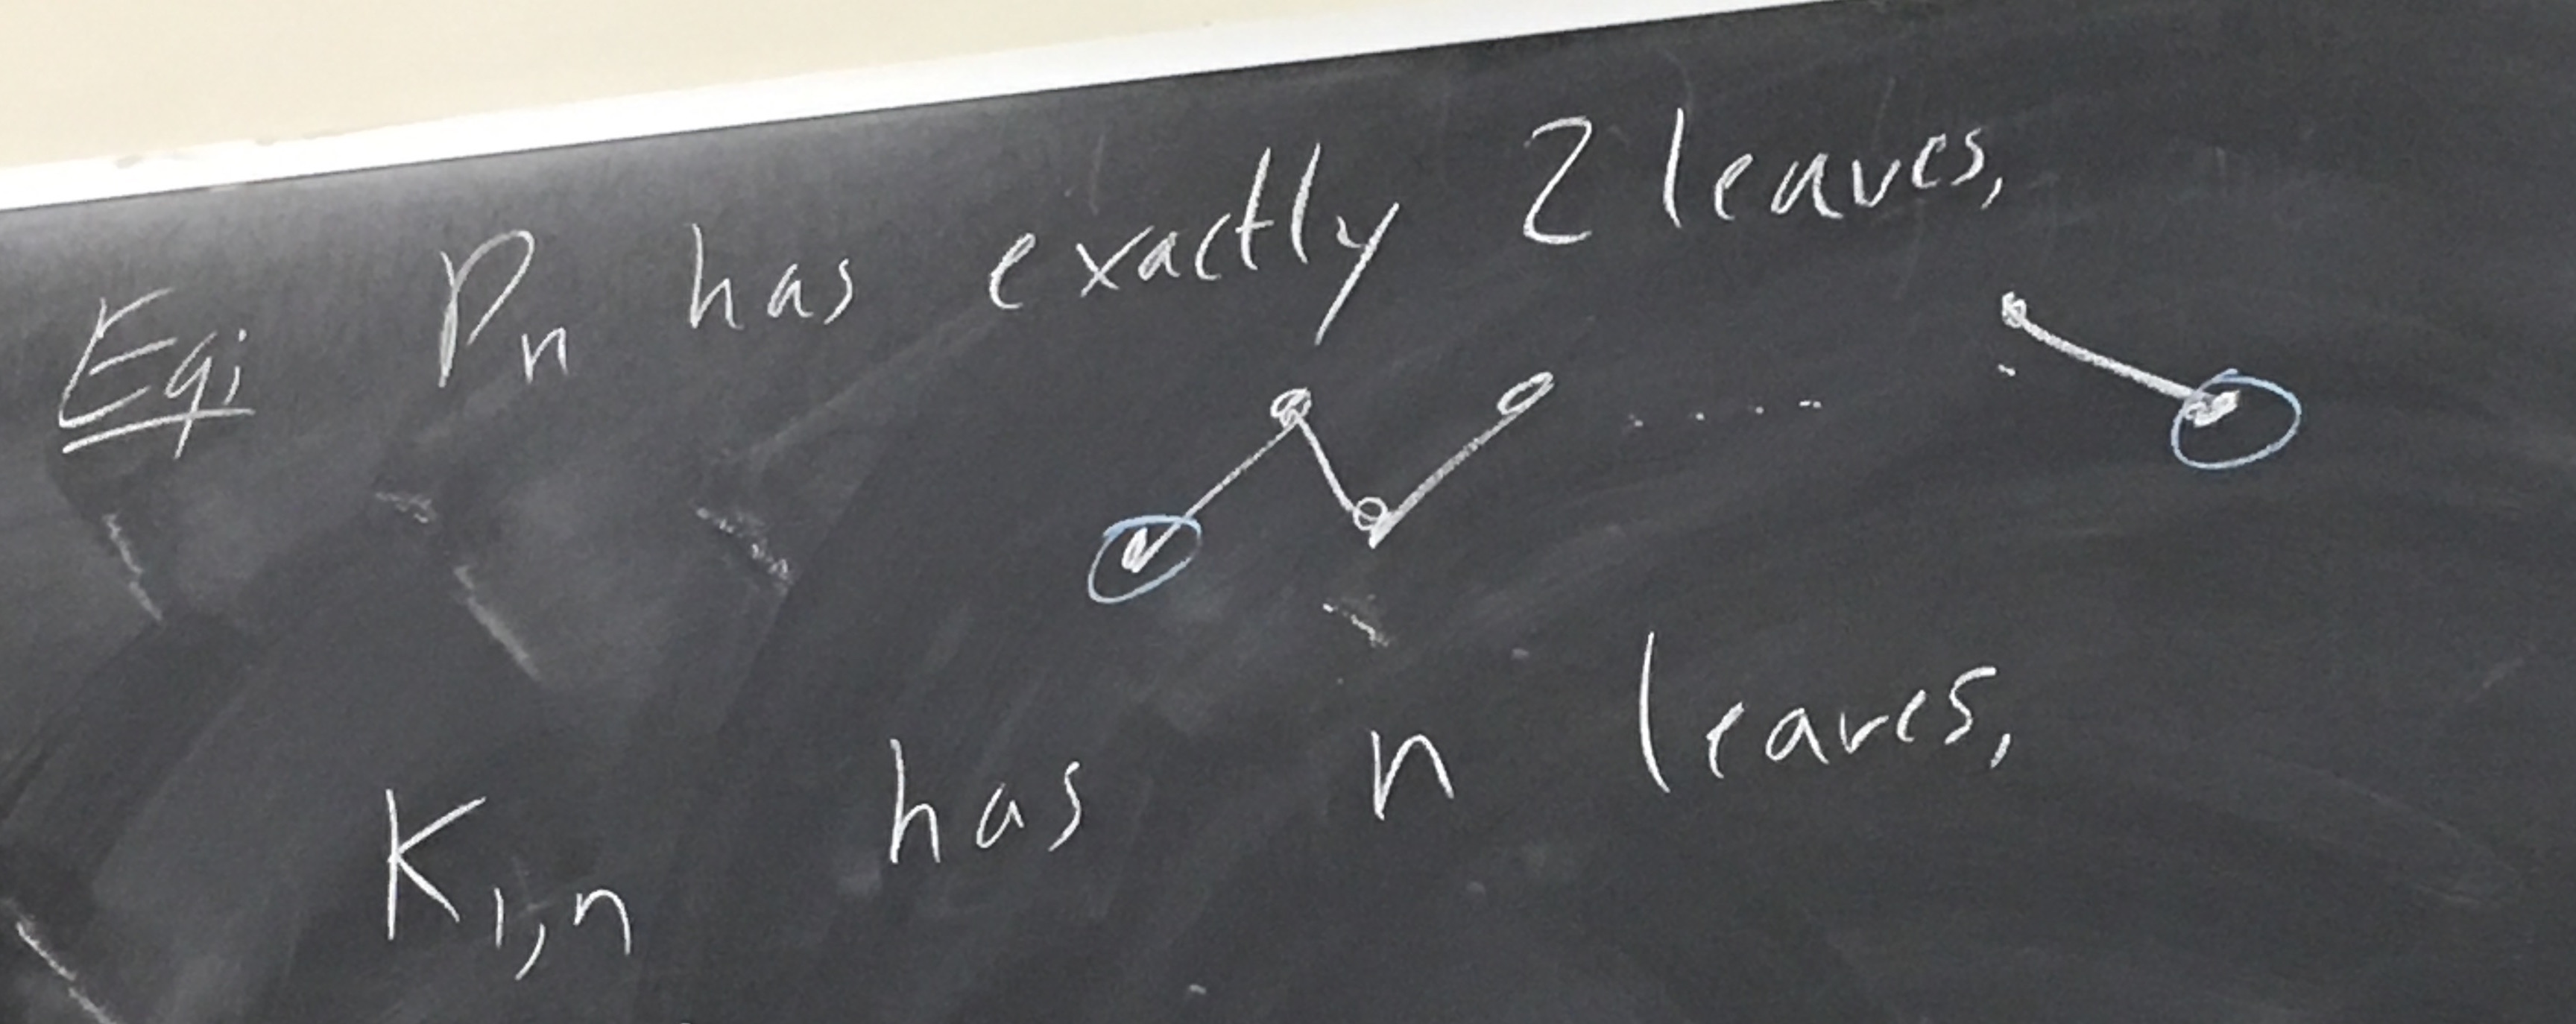 Eg: Pn has exactly 2 leaves,
K1,n has n leaves,